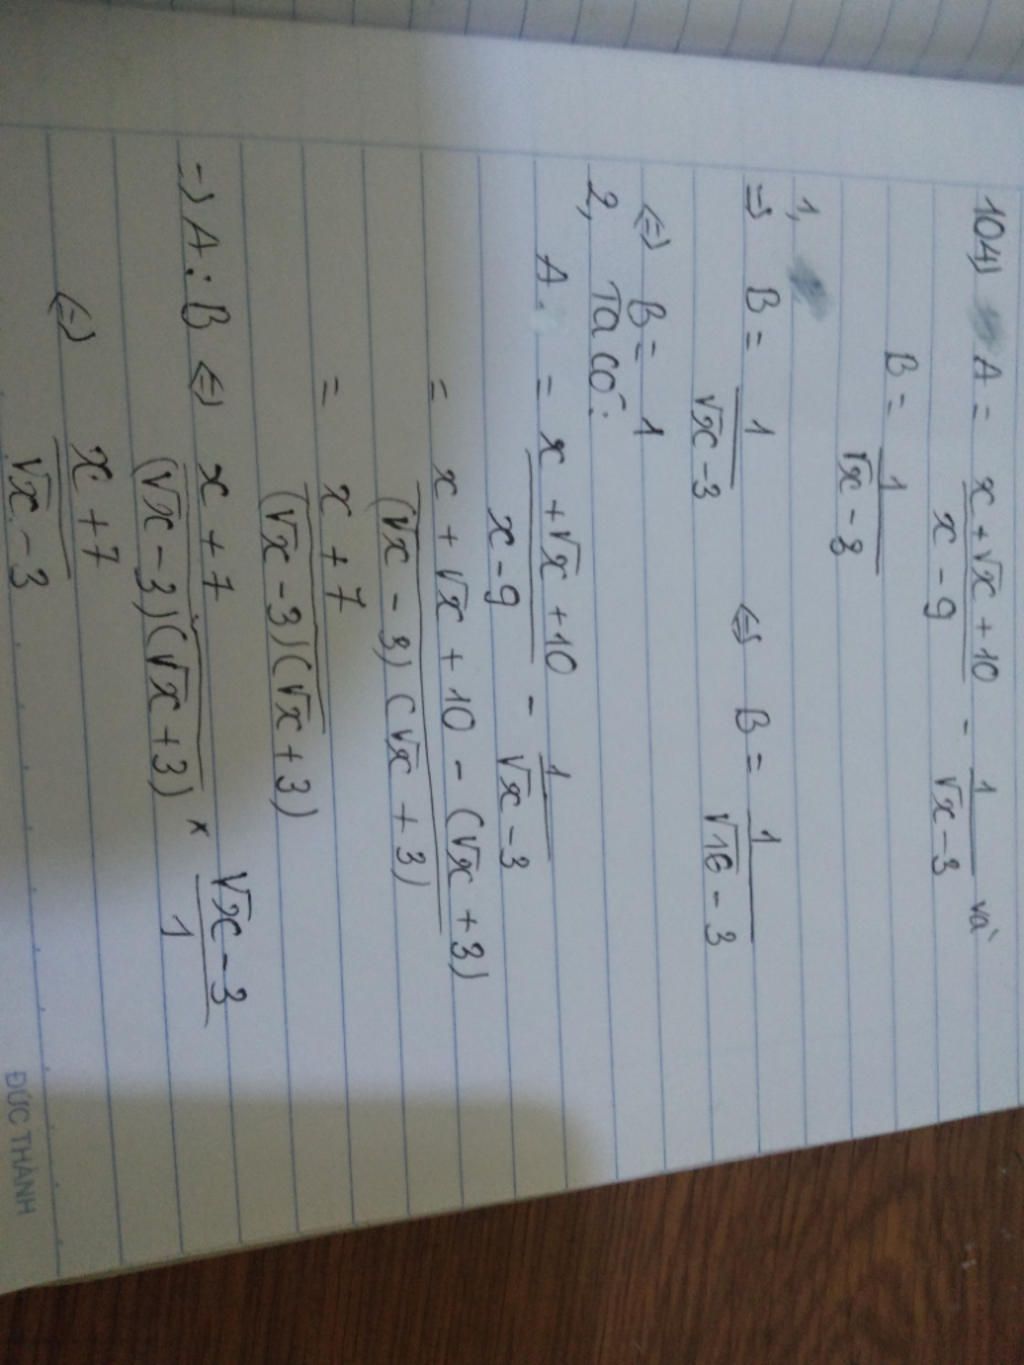 104) A = x+√x+10 / x-9 - 1 / √x-3 và
B = 1 / √x-3
1,
=> B = 1 / √x-3 <=> B = 1 / √16-3
<=> B = 1
2, Ta có:
A = x+√x+10 / x-9 - 1 / √x-3
= x+√x+10-(√x+3) / (√x-3)(√x+3)
= x+7 / (√x-3)(√x+3)
=> A : B <=> x+7 / (√x-3)(√x+3) × √x-3 / 1
<=> x+7 / √x-3
ĐỨC THÀNH